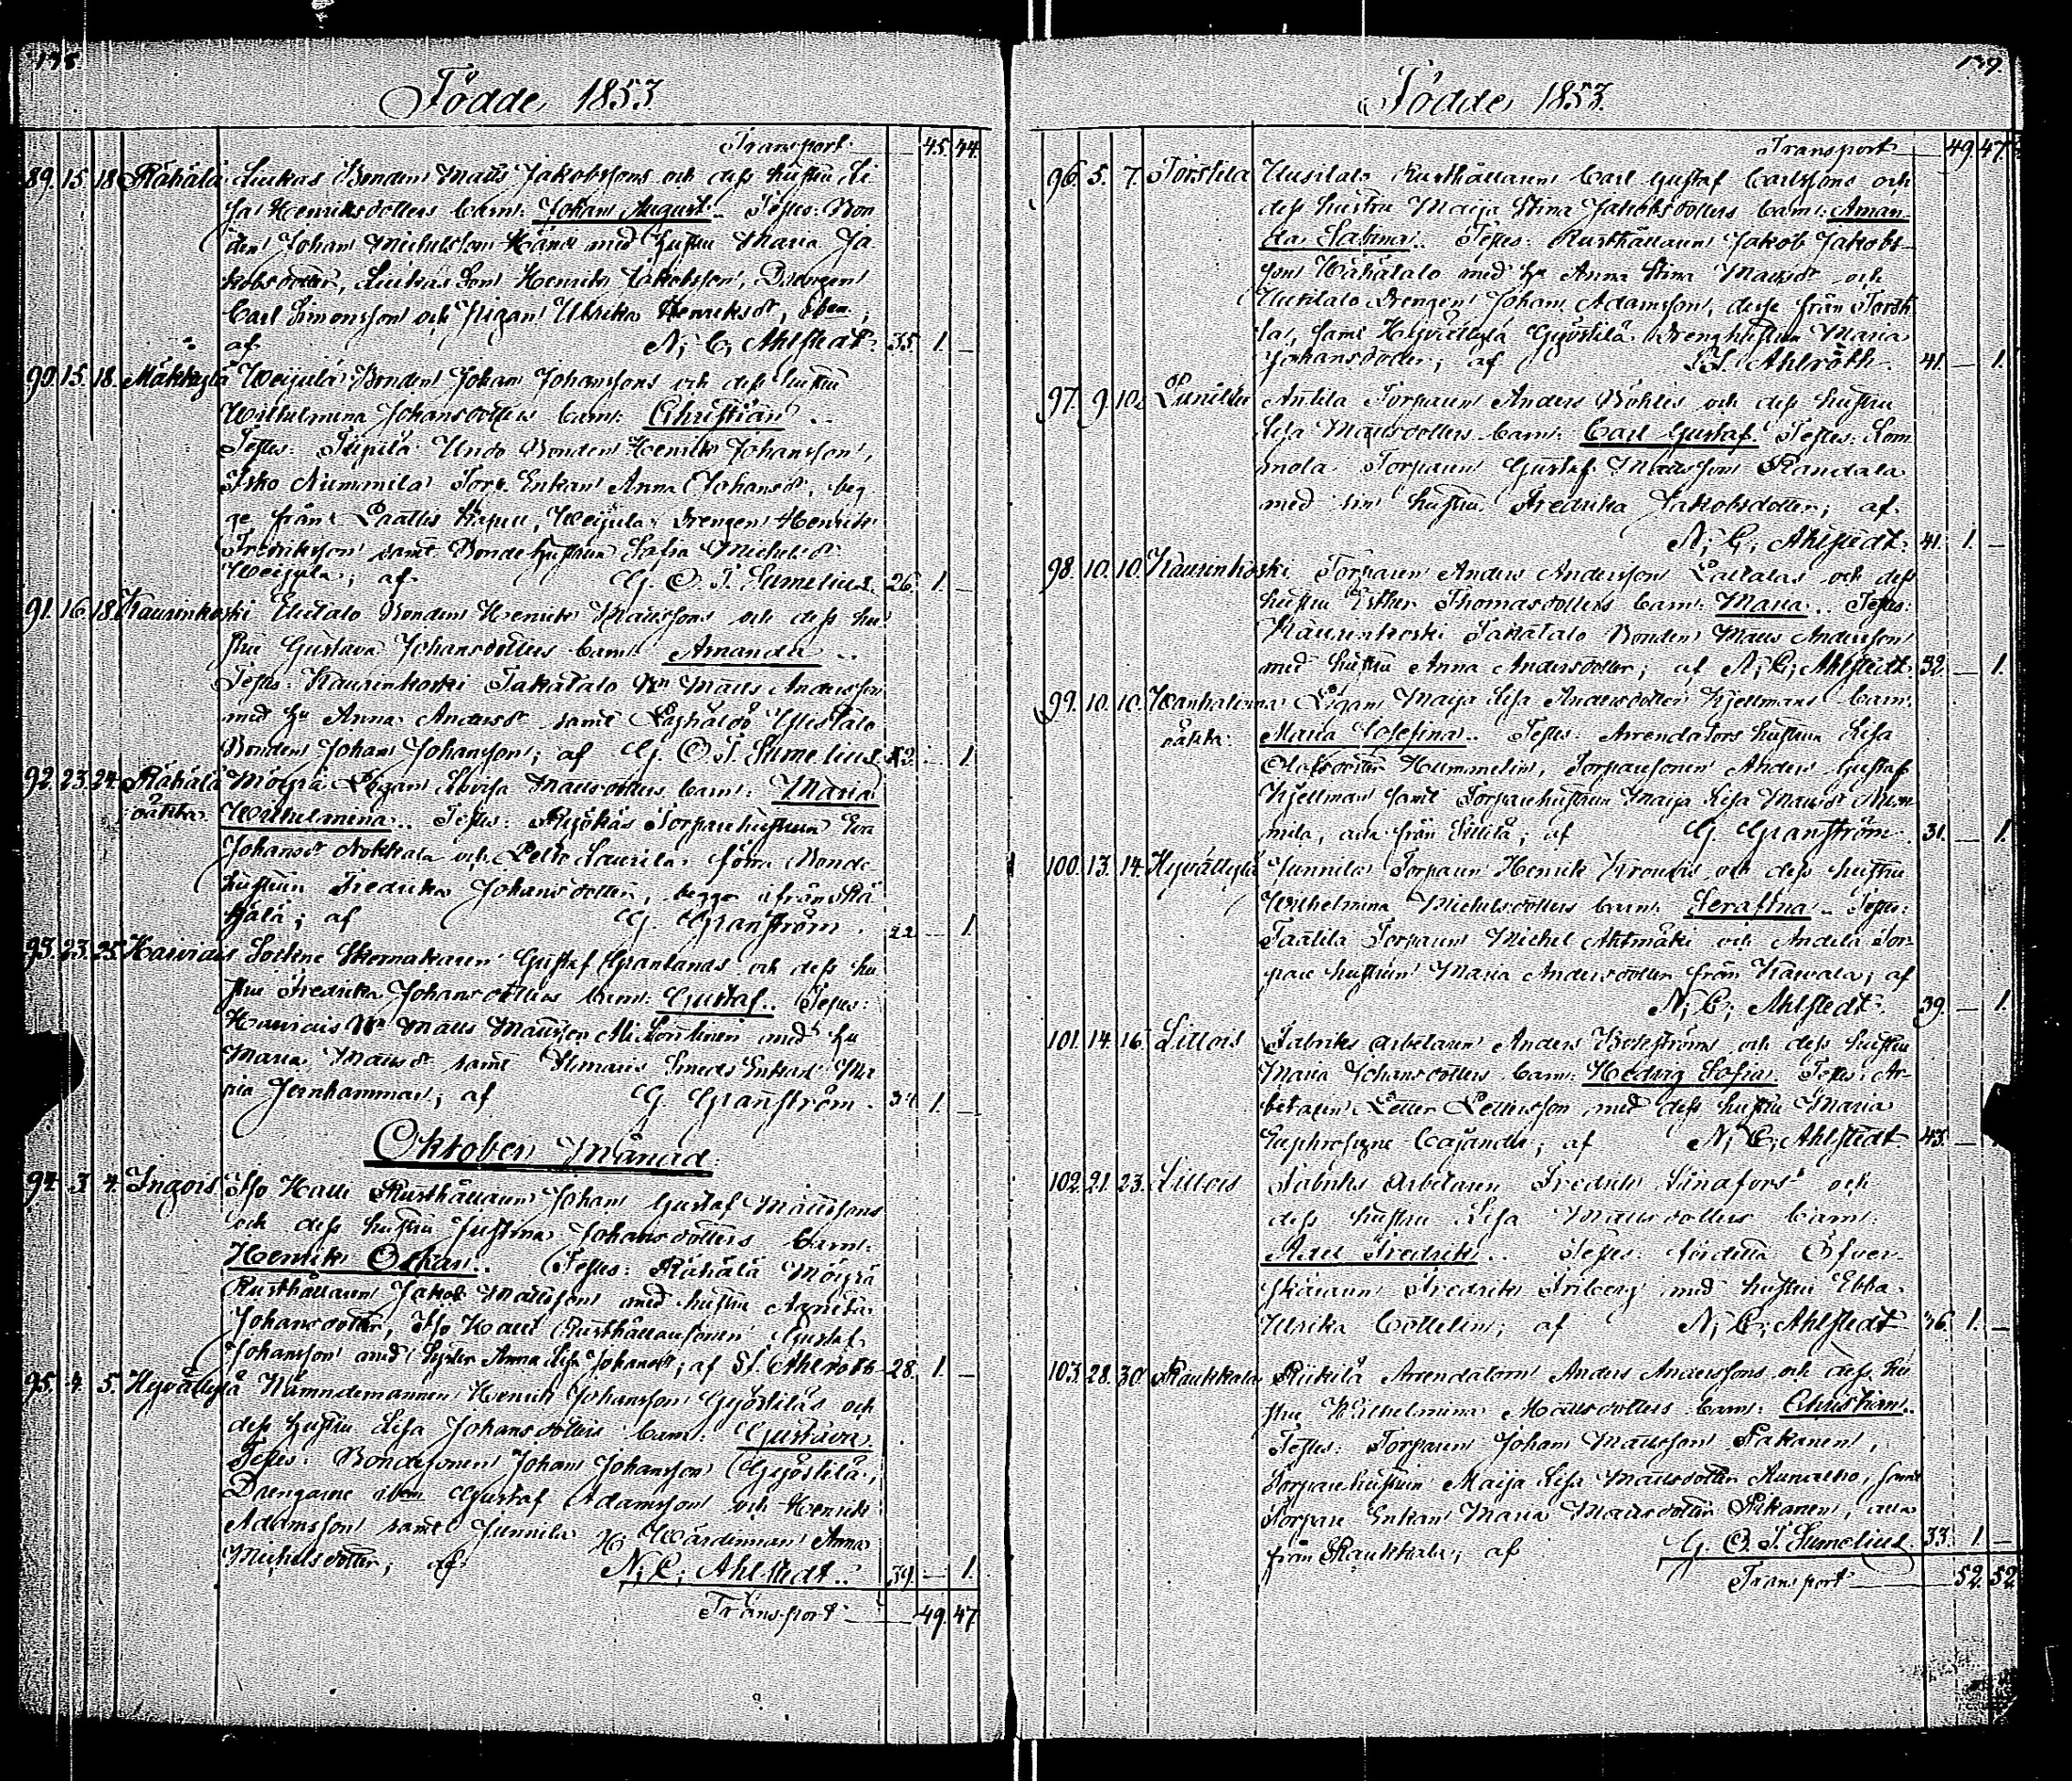 Födde 1853.
Transport 45. 44.
89. 15. 18. Rähälä Luikas Bonden Matts Jakobssons och dess hustru Li
sa Henriksdotters barn: Johan August.. Testes: Bon
den Johan Michelsson Händ med hustru Maria Ja
kobsdotter, Luikas Son Henrik Jakobsson, Drengen
Carl Simonsson och Pigan Ulrika Henriksdr,
af N, C, Ahlstedt. 35. 1. —
90. 15. 18. Mäkkylä Weijula Bonden Johan Johanssons och dess hustru
Wilhelmina Johansdotters barn: Christian..
Testes: Bonden Henrik Johansson,
Isko Nummila Torp. Enkan Anna Johansdr, beg
ge från Kapell, Weijula Drengen Henrik
Fredriksson samt Bondehustrun Sofia Michelsdr
Weijula; af G. O. T. Sumelius. 26. 1. —
91. 16. 18. Kaurinkoski Bonden Henrik Mattssons och dess hu
stru Gustava Johansdotters barn: Amanda ..
Testes: Kaurinkoski Takatalo Bn Matts Andersson
med hu Anna Andersdr samt
Bonden Johan Johansson; af G. O. T. Sumelius. — 1
92. 23. 24. Rähälä Möysä Pigan Lovisa Mattsdotters barn: Maria
Wilhelmina.. Testes: Torparehustrun Eva
Johansdr Nokkala och Pelto Laurila förra Bonde
hustrun Fredrika Johansdotter, begge ifrån Rä
hälä; af G. Granström. 22 — 1.
93. 23. 25. Harviais Sockne Skomakaren Gustaf Granlunds och dess hu
stru Fredrika Johansdotters barn: Gustaf.. Testes:
Harviais Bn Matts Mattsson med hu
Maria Mattsdr samt Smeds Enkan Ma
ria Jernhammar; af G. Granström. 34 1. —
Oktober Månad.
94. 3. 4. Ingois Iso Halli Rusthållaren Johan Gustaf Mattssons
och dess hustru Justina Johansdotters barn:
Henrik Oskar.. Testes: Rähälä Möysä
Rusthållaren Jakob Mattsson med hustru Agneta
Johansdotter, Iso Halli Rusthållaresonen Gustaf
Johansson med Syster Anna Lisa Johansdr; af S. I. Ahlroth 28. 1. —
95. 4. 5. Hyvälkylä Nämndemannen Henrik Johansson Gyöstiläs och
dess hustru Lisa Johansdotters barn: Gustava
Testes: Bondesonen Johan Johansson Gyöstilä,
Drengarne ibm Gustaf Adamsson och Henrik
Adamsson samt Junnila Anna
Michelsdotter; af N, C, Ahlstedt.. 39. — 1.
Transport 49. 47
139.
Födde 1853.
Transport 49. 47.
96. 5. 7. Torstila Uusitalo Rusthållaren Carl Gustaf Carlssons och
dess hustru Maija Stina Jakobsdotters barn: Aman
da Sabina.. Testes: Rusthållaren Jakob Jakobs
son Wähätalo med hu Anna Stina Mattsdr och
Uusitalo Drengen Johan Adamsson, desse från Torsti
la, samt Hyvälkylä Gyöstilä Drenghustrun Maria
Johansdotter; af S. I. Ahlroth. 41. — 1.
97. 9. 10. Anttila Torparen Anders Böhles och dess hustru
Lisa Mattsdotters barn: Carl Gustaf. Testes: Lom
mola Torparen Gustaf Mattsson Randala
med sin hustru Fredrika Jakobsdotter; af
N, C, Ahlstedt. 41. 1. —
98. 10. 10. Kaurinkoski Torparen Anders Andersson och dess
hustru Esther Thomasdotters barn: Maria.. Testes:
Kaurinkoski Takatalo Bonden Matts Andersson
med hustru Anna Andersdotter; af N, C, Ahlstedt. 32. — 1.
99. 10. 10. Wanhalinna Pigan Maija Lisa Andersdotter Kjellmans barn:
Maria Josefina.. Testes: Arrendators hustrun Lisa
Olofsdotter Hummelin, Torparesonen Anders Gustaf
Kjellman samt Torparehustrun Maija Lisa Mattsdr Num
mila, alla från af G. Granström. 31. — 1.
100. 13. 14. Hyvälkylä Junnila Torparen Henrik och dess hustru
Wilhelmina Michelsdotters barn: Serafina.. Testes:
Taatila Torparen Michel Ahtmäki och Andela Tor
pare hustrun Maria Andersdotter från Harvala; af
N, C, Ahlstedt. 39. — 1.
101. 14. 16. Lillois Fabriks arbetaren Anders och dess hustru
Maria Johansdotters barn: Hedvig Sofia Testes: Ar
betaren Petter Pettersson med dess hustru Maria
Euphrosyne Cajander; af N, C, Ahlstedt 43. —
102. 21. 23. Lillois Fabriks Arbetaren Fredrik Lindfors och
dess hustru Lisa Mattsdotters barn:
Axel Fredrik.. Testes: Öfver
skäraren Fredrik Friberg med hustru Ebba
Ulrika Collelin; af N, C, Ahlstedt 36. 1. —
103. 28. 30. Raukkala Riikilä Arrendatorn Anders Anderssons och dess hu
stru Wilhelmina Mattsdotters barn: Christian..
Testes: Torparen Johan Mattsson Pakanen,
Torparehustrun Maija Lisa Mattsdotter samt
Torpare Enkan Maria Mattsdotter alla
från Raukkala; af G. O. T. Sumelius. 33. 1. —
Transport 52. 52